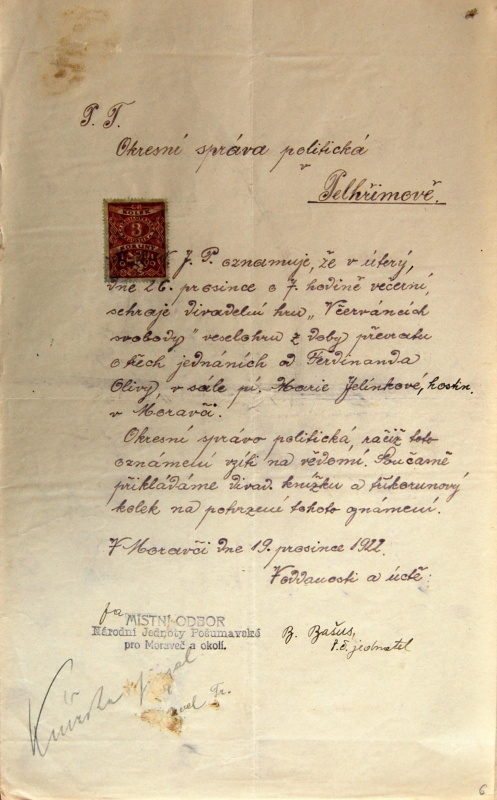 P. T.
Okresní správa politická
v
Pelhřimově.
KOLEK
3
KORUNY
J. P. oznamuje, že v úterý,
dne 26. prosince o 7. hodině večerní,
sehraje divadelní hru „V červáncích
svobody" veselohru z doby převratu
o třech jednáních od Ferdinanda
Olivy, v sale pí. Marie Jelínkové, hostin.
v Moravči.
Okresní správo politická, račiž toto
oznámení vzíti na vědomí. Současně
přikládáme divad. knížku a tříkorunový
kolek na potvrzení tohoto oznámení.
V Moravči dne 19. prosince 1922.
V oddanosti a úctě:
fa
MÍSTNÍ ODBOR
Národní Jednoty Pošumavské
pro Moraveč a okolí.
B. Bašus,
t. č. jednatel
Fr.
6